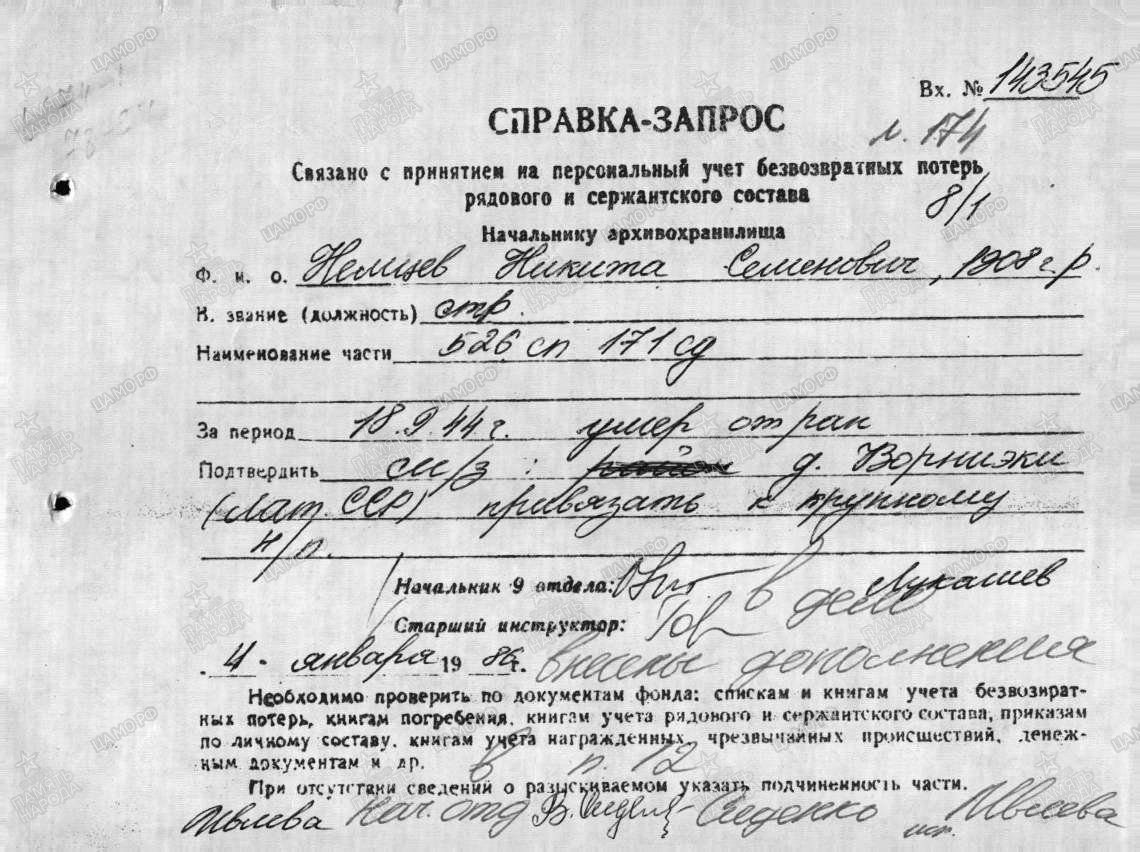 Вх. № 143545
СПРАВКА-ЗАПРОС
л. 174
Связано с принятием на персональный учет безвозвратных потерь
рядового и сержантского состава
8/1
Начальнику архивохранилища
Ф. и. о. Немцев Никита Семенович, 1908 г.р.
В. звание (должность) стр.
Наименование части 526 сп 171 сд
За период 18.9.44 г. умер от ран
Подтвердить м/з: район д. Ворнизки
(Лат. ССР) привязать к крупному
н/п.
Начальник 9 отдела: Лукашев
Старший инструктор: в деле
4 января 1986 г. внесены дополнения
Необходимо проверить по документам фонда: спискам и книгам учета безвозврат-
ных потерь, книгам погребения, книгам учета рядового и сержантского состава, приказам
по личному составу, книгам учета награжденных, чрезвычайных происшествий, денеж-
ным документам и др. в п. 12
При отсутствии сведений о разыскиваемом указать подчиненность части.
Ивлева Нач. отд Сиденко
ЦАМО.РФ
ПАМЯТЬ НАРОДА